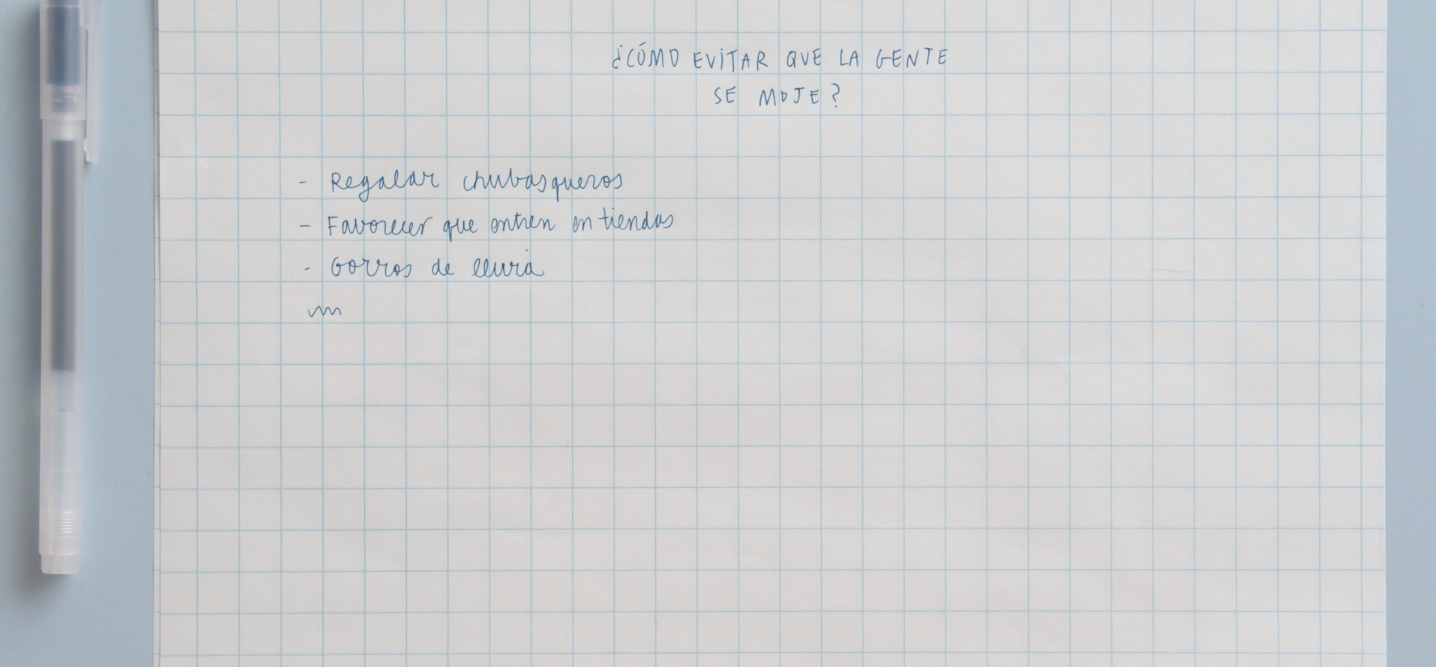 ¿CÓMO EVITAR QUE LA GENTE
SE MOJE?
- Regalar chubasqueros
- Favorecer que entren en tiendas
- Gorros de lluvia